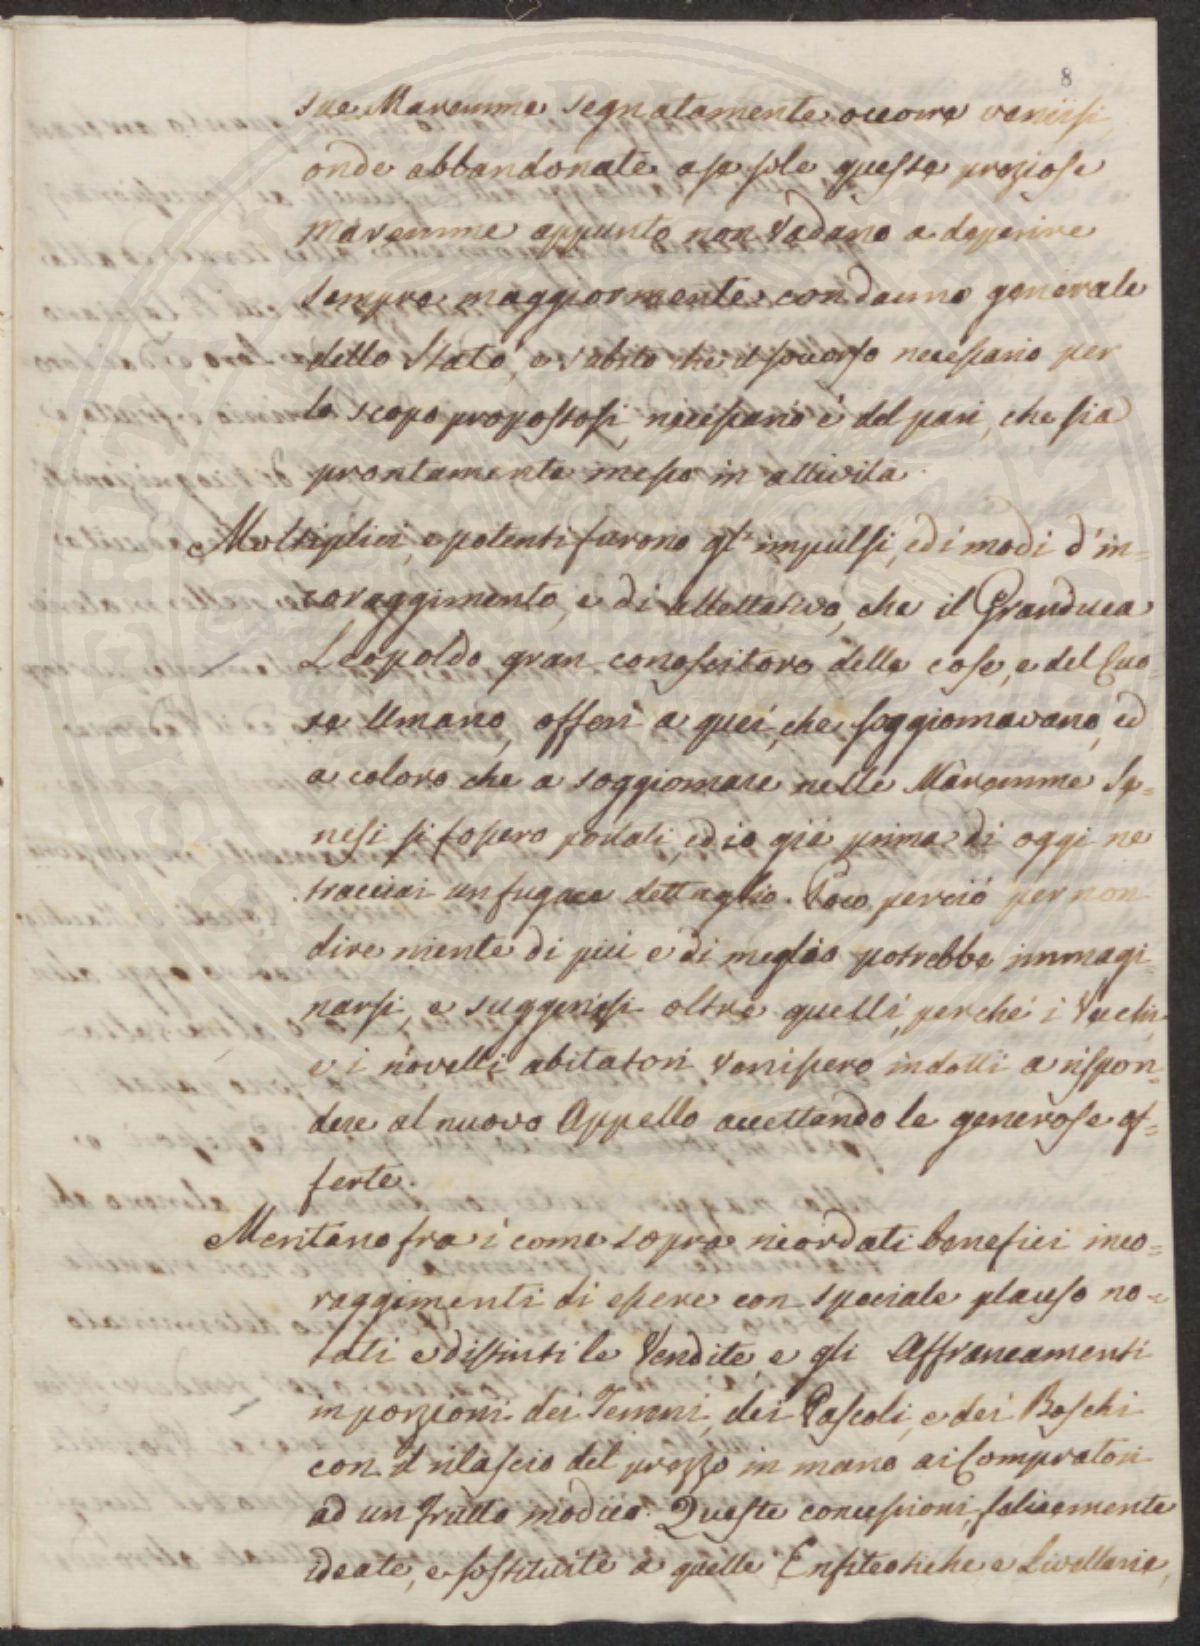 8
sue Maremme segnatamente occorre venirsi,
onde abbandonate a se sole queste preziose
Maremme appunto non vadano a deperire
sempre maggiormente con danno generale
dello Stato, e subito che il soccorso necessario per
lo scopo propostosi, necessario è del pari, che sia
prontamente messo in attività.
Moltiplici, e potenti furono gl'impulsi, ed i modi d'in=
coraggimento, e di allettativo, che il Granduca
Leopoldo gran conoscitore delle cose, e del Cuo=
re Umano, offerì a quei, che soggiornavano, ed
a coloro che a soggiornare nelle Maremme Se=
nesi si fossero portati, ed io già prima di oggi ne
tracciai un fugace dettaglio. Poco perciò per non
dire niente di più e di meglio potrebbe immagi=
narsi, e suggerirsi oltre quelli, perché i Vecchi,
e i novelli abitatori venissero indotti a rispon=
dere al nuovo Appello accettando le generose of=
ferte.
Meritano fra i come sopra ricordati benefici inco=
raggimenti di essere con speciale plauso no=
tati e distinti le Vendite, e gli Affrancamenti
in porzioni dei Terreni, dei Pascoli, e dei Boschi
con il rilascio del prezzo in mano ai Compratori
ad un frutto modico. Queste concessioni, felicemente
ideate, e sostituite a quelle Enfiteotiche e Livellarie,